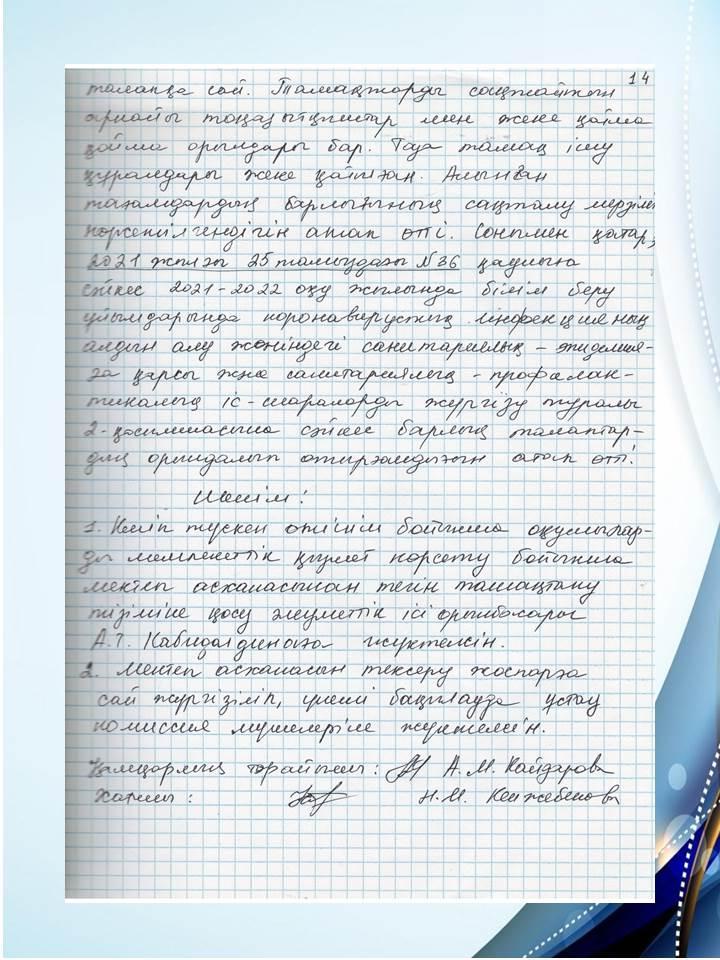 14
талапқа сай. Тамақтарды сақтайтын
арнайы тоңазытқыштар мен жеке қойма
қойма орындары бар. Таза тамақ ішу
құралдары жеке қойылған. Алынған
тағамдардың барлығының сақталу мерзімі
көрсетілгендігін атап өтті. Сонымен қатар,
2021 жылғы 25 тамыздағы №36 қаулыға
сәйкес 2021-2022 оқу жылында білім беру
ұйымдарында коронавирустық инфекцияның
алдын алу жөніндегі санитариялық - эпидемия-
ға қарсы және санитариялық - профалак-
тикалық іс-шараларды жүргізу туралы
2-қосымшасына сәйкес барлық талаптар-
дың орындалып отырғандығын атап өтті.
Шешім:
1. Келіп түскен өтініш бойынша оқушылар-
ды мемлекеттік қызмет көрсету бойынша
мектеп асханасынан тегін тамақтану
тізіміне қосу әлеуметтік ісі орынбасары
А.Т. Кабидолдиноваға жүктелсін.
2. Мектеп асханасын тексеру жоспарға
сай жүргізіліп, үнемі бақылауда ұстау
комиссия мүшелеріне жүктелсін.
Қамқорлық төрайымы: А.М. Кайдарова
Хатшы: Н.М. Кенжебекова